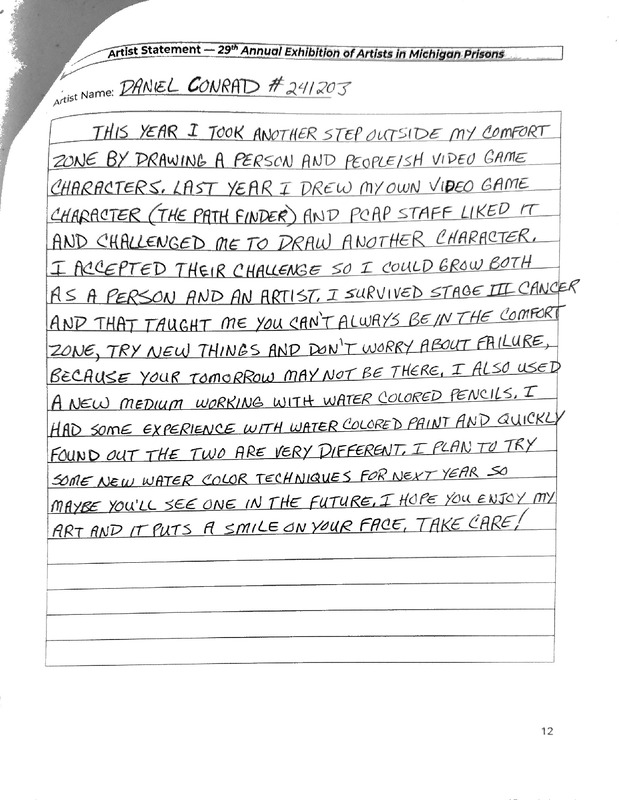 Artist Statement — 29th Annual Exhibition of Artists in Michigan Prisons
Artist Name: DANIEL CONRAD # 241203
THIS YEAR I TOOK ANOTHER STEP OUTSIDE MY COMFORT
ZONE BY DRAWING A PERSON AND PEOPLEISH VIDEO GAME
CHARACTERS. LAST YEAR I DREW MY OWN VIDEO GAME
CHARACTER (THE PATH FINDER) AND PCAP STAFF LIKED IT
AND CHALLENGED ME TO DRAW ANOTHER CHARACTER.
I ACCEPTED THEIR CHALLENGE SO I COULD GROW BOTH
AS A PERSON AND AN ARTIST. I SURVIVED STAGE III CANCER
AND THAT TAUGHT ME YOU CAN'T ALWAYS BE IN THE COMFORT
ZONE, TRY NEW THINGS AND DON'T WORRY ABOUT FAILURE,
BECAUSE YOUR TOMORROW MAY NOT BE THERE. I ALSO USED
A NEW MEDIUM WORKING WITH WATER COLORED PENCILS. I
HAD SOME EXPERIENCE WITH WATER COLORED PAINT AND QUICKLY
FOUND OUT THE TWO ARE VERY DIFFERENT. I PLAN TO TRY
SOME NEW WATER COLOR TECHNIQUES FOR NEXT YEAR SO
MAYBE YOU'LL SEE ONE IN THE FUTURE. I HOPE YOU ENJOY MY
ART AND IT PUTS A SMILE ON YOUR FACE. TAKE CARE!
12